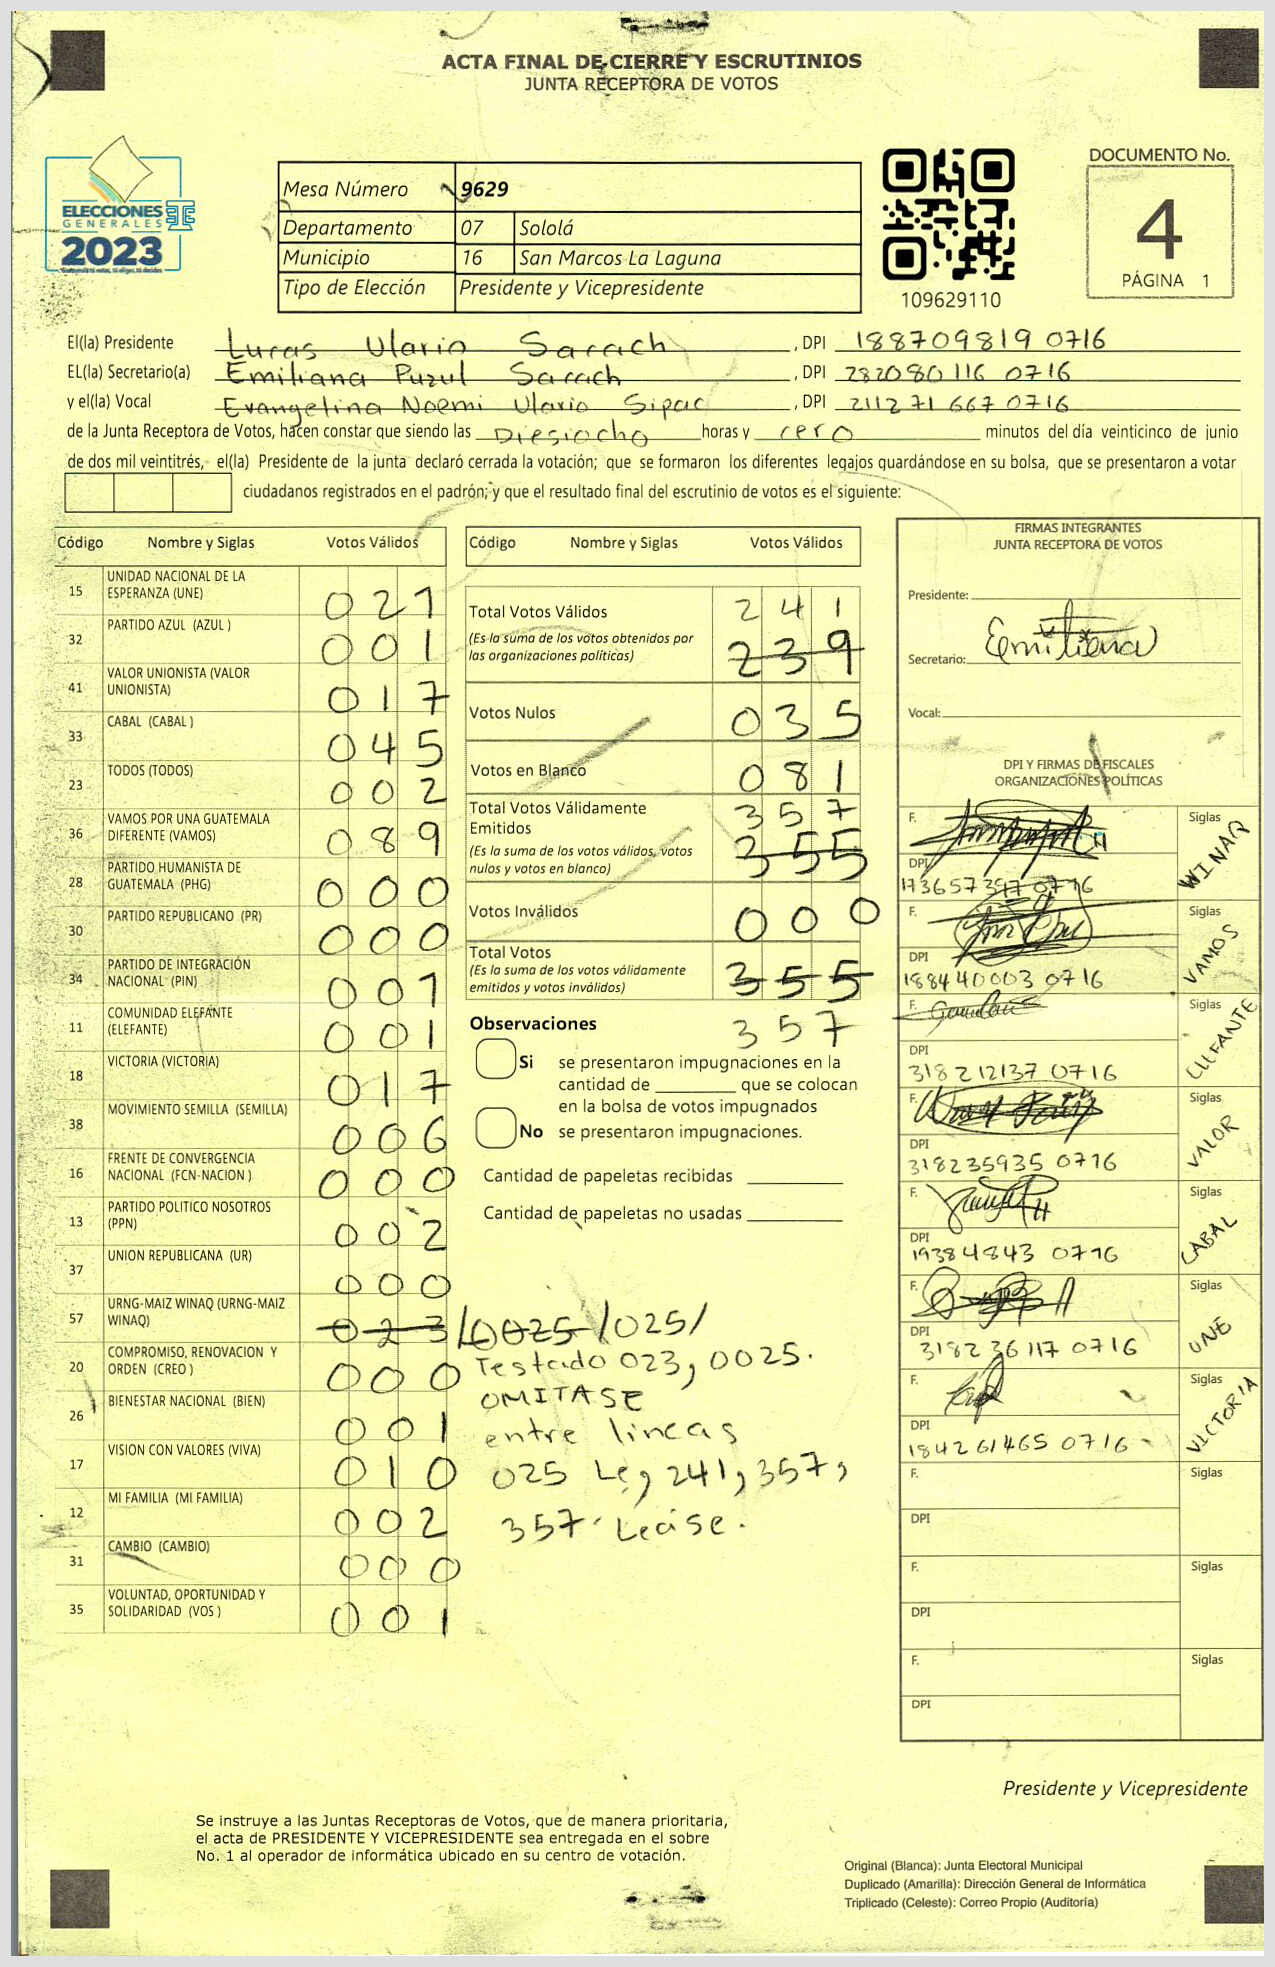 ACTA FINAL DE CIERRE Y ESCRUTINIOS
JUNTA RECEPTORA DE VOTOS
ELECCIONES
GENERALES
2023
Mesa Número 9629
Departamento 07 Sololá
Municipio 16 San Marcos La Laguna
Tipo de Elección Presidente y Vicepresidente
109629110
DOCUMENTO No.
4
PÁGINA 1
El(la) Presidente Lucas Ulario Sacach, DPI 188709819 0716
EL(la) Secretario(a) Emiliana Puzul Sacach, DPI 282080116 0716
y el(la) Vocal Evangelina Noemi Ulario Sipac, DPI 211271667 0716
de la Junta Receptora de Votos, hacen constar que siendo las Diesiocho horas y cero minutos del día veinticinco de junio
de dos mil veintitrés, el(la) Presidente de la junta declaró cerrada la votación; que se formaron los diferentes legajos guardándose en su bolsa, que se presentaron a votar
ciudadanos registrados en el padrón; y que el resultado final del escrutinio de votos es el siguiente:
Código Nombre y Siglas Votos Válidos
15 UNIDAD NACIONAL DE LA
ESPERANZA (UNE) 021
32 PARTIDO AZUL (AZUL ) 001
41 VALOR UNIONISTA (VALOR
UNIONISTA) 017
33 CABAL (CABAL ) 045
23 TODOS (TODOS) 002
36 VAMOS POR UNA GUATEMALA
DIFERENTE (VAMOS) 089
28 PARTIDO HUMANISTA DE
GUATEMALA (PHG) 000
30 PARTIDO REPUBLICANO (PR) 000
34 PARTIDO DE INTEGRACIÓN
NACIONAL (PIN) 001
11 COMUNIDAD ELEFANTE
(ELEFANTE) 001
18 VICTORIA (VICTORIA) 017
38 MOVIMIENTO SEMILLA (SEMILLA) 006
16 FRENTE DE CONVERGENCIA
NACIONAL (FCN-NACION ) 000
13 PARTIDO POLITICO NOSOTROS
(PPN) 002
37 UNION REPUBLICANA (UR) 000
57 URNG-MAIZ WINAQ (URNG-MAIZ
WINAQ) 023 /0025 /025/
20 COMPROMISO, RENOVACION Y
ORDEN (CREO ) 000
26 BIENESTAR NACIONAL (BIEN) 001
17 VISION CON VALORES (VIVA) 010
12 MI FAMILIA (MI FAMILIA) 002
31 CAMBIO (CAMBIO) 000
35 VOLUNTAD, OPORTUNIDAD Y
SOLIDARIDAD (VOS ) 001
Código Nombre y Siglas Votos Válidos
Total Votos Válidos 241
(Es la suma de los votos obtenidos por
las organizaciones políticas) 239
Votos Nulos 035
Votos en Blanco 081
Total Votos Válidamente
Emitidos 357
(Es la suma de los votos válidos, votos
nulos y votos en blanco) 355
Votos Inválidos 000
Total Votos
(Es la suma de los votos válidamente
emitidos y votos inválidos) 355
357
Observaciones
Si se presentaron impugnaciones en la
cantidad de ________ que se colocan
en la bolsa de votos impugnados
No se presentaron impugnaciones.
Cantidad de papeletas recibidas
Cantidad de papeletas no usadas
Testado 023, 0025.
OMITASE
entre lineas
025 Le, 241, 357,
357 Lease.
FIRMAS INTEGRANTES
JUNTA RECEPTORA DE VOTOS
Presidente:
Secretario: Emiliana
Vocal:
DPI Y FIRMAS DE FISCALES
ORGANIZACIONES POLÍTICAS
F. Siglas WINAQ
DPI
F. Siglas VAMOS
DPI 188440003 0716
F. Siglas
DPI 318212137 0716
F. Siglas VALOR
DPI 318235935 0716
F. Siglas CABAL
DPI 19384843 0716
F. Siglas UNE
DPI 318236117 0716
F. Siglas VICTORIA
DPI 184261465 0716
F. Siglas
DPI
F. Siglas
DPI
F. Siglas
DPI
Presidente y Vicepresidente
Se instruye a las Juntas Receptoras de Votos, que de manera prioritaria,
el acta de PRESIDENTE Y VICEPRESIDENTE sea entregada en el sobre
No. 1 al operador de informática ubicado en su centro de votación.
Original (Blanca): Junta Electoral Municipal
Duplicado (Amarilla): Dirección General de Informática
Triplicado (Celeste): Correo Propio (Auditoría)